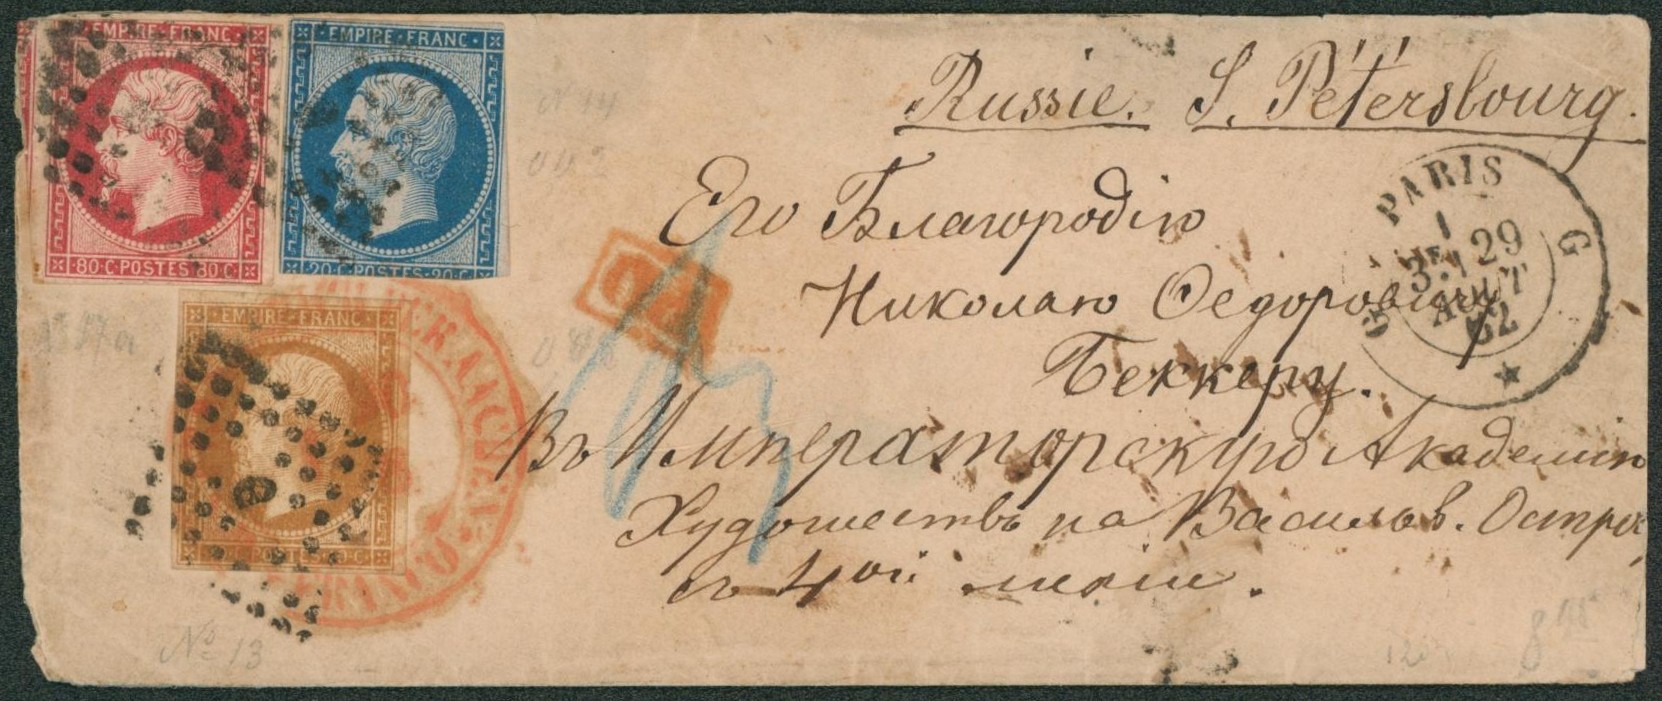 EMPIRE·FRANC·
80·C·POSTES·80·C·
EMPIRE·FRANC·
20·C·POSTES·20·C·
EMPIRE·FRANC·
FRANCO
Russie. S. Pétersbourg.
Его Благородію
Николаю Ѳедоровичу
Беккеру.
Въ Императорскую Академію
Художествъ на Васильев. Остро
4ой линіи.
PARIS
29
AOUT
62
G
No 13